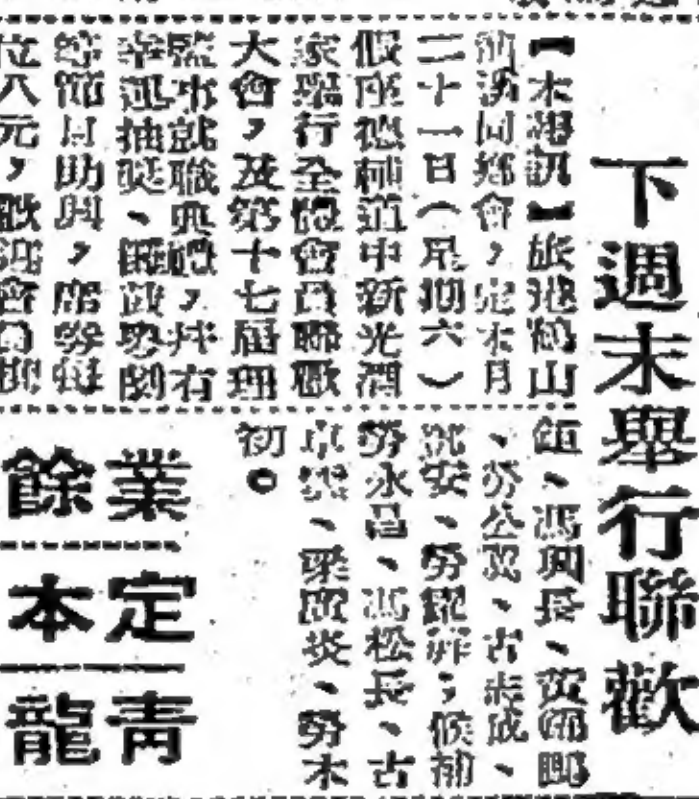 下週末舉行聯歡
【本港訊】旅港鶴山
同鄉會，定本月
二十一日（星期六）
假座德輔道中新光酒
家舉行全體會員聯歡
大會，及第十七屆理
監事就職典禮，並有
幸運抽獎、粵劇
等節目助興，席券每
位八元，歡迎會員
鈿、馮炯長、黃
、勞公、古未成、
安、勞、候補
勞永昌、馮松長、古
、梁炎、勞木
初。
業餘
定本
青龍